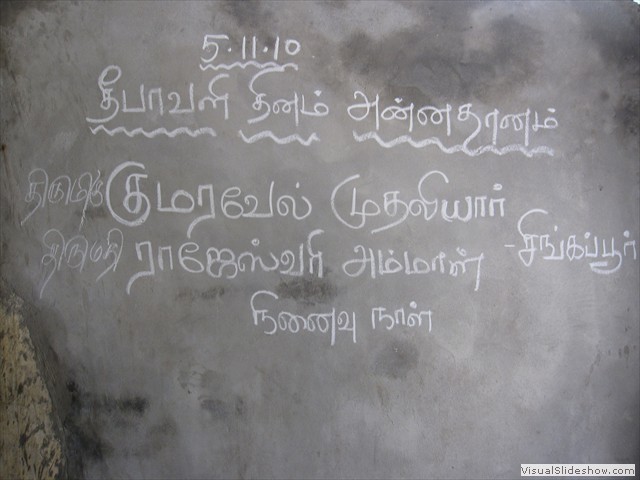 5.11.10
தீபாவளி தினம் அன்னதானம்
குமரவேல் முதலியார்
திருமதி ராஜேஸ்வரி அம்மாள் - சிங்கப்பூர்
நினைவு நாள்
VisualSlideshow.com